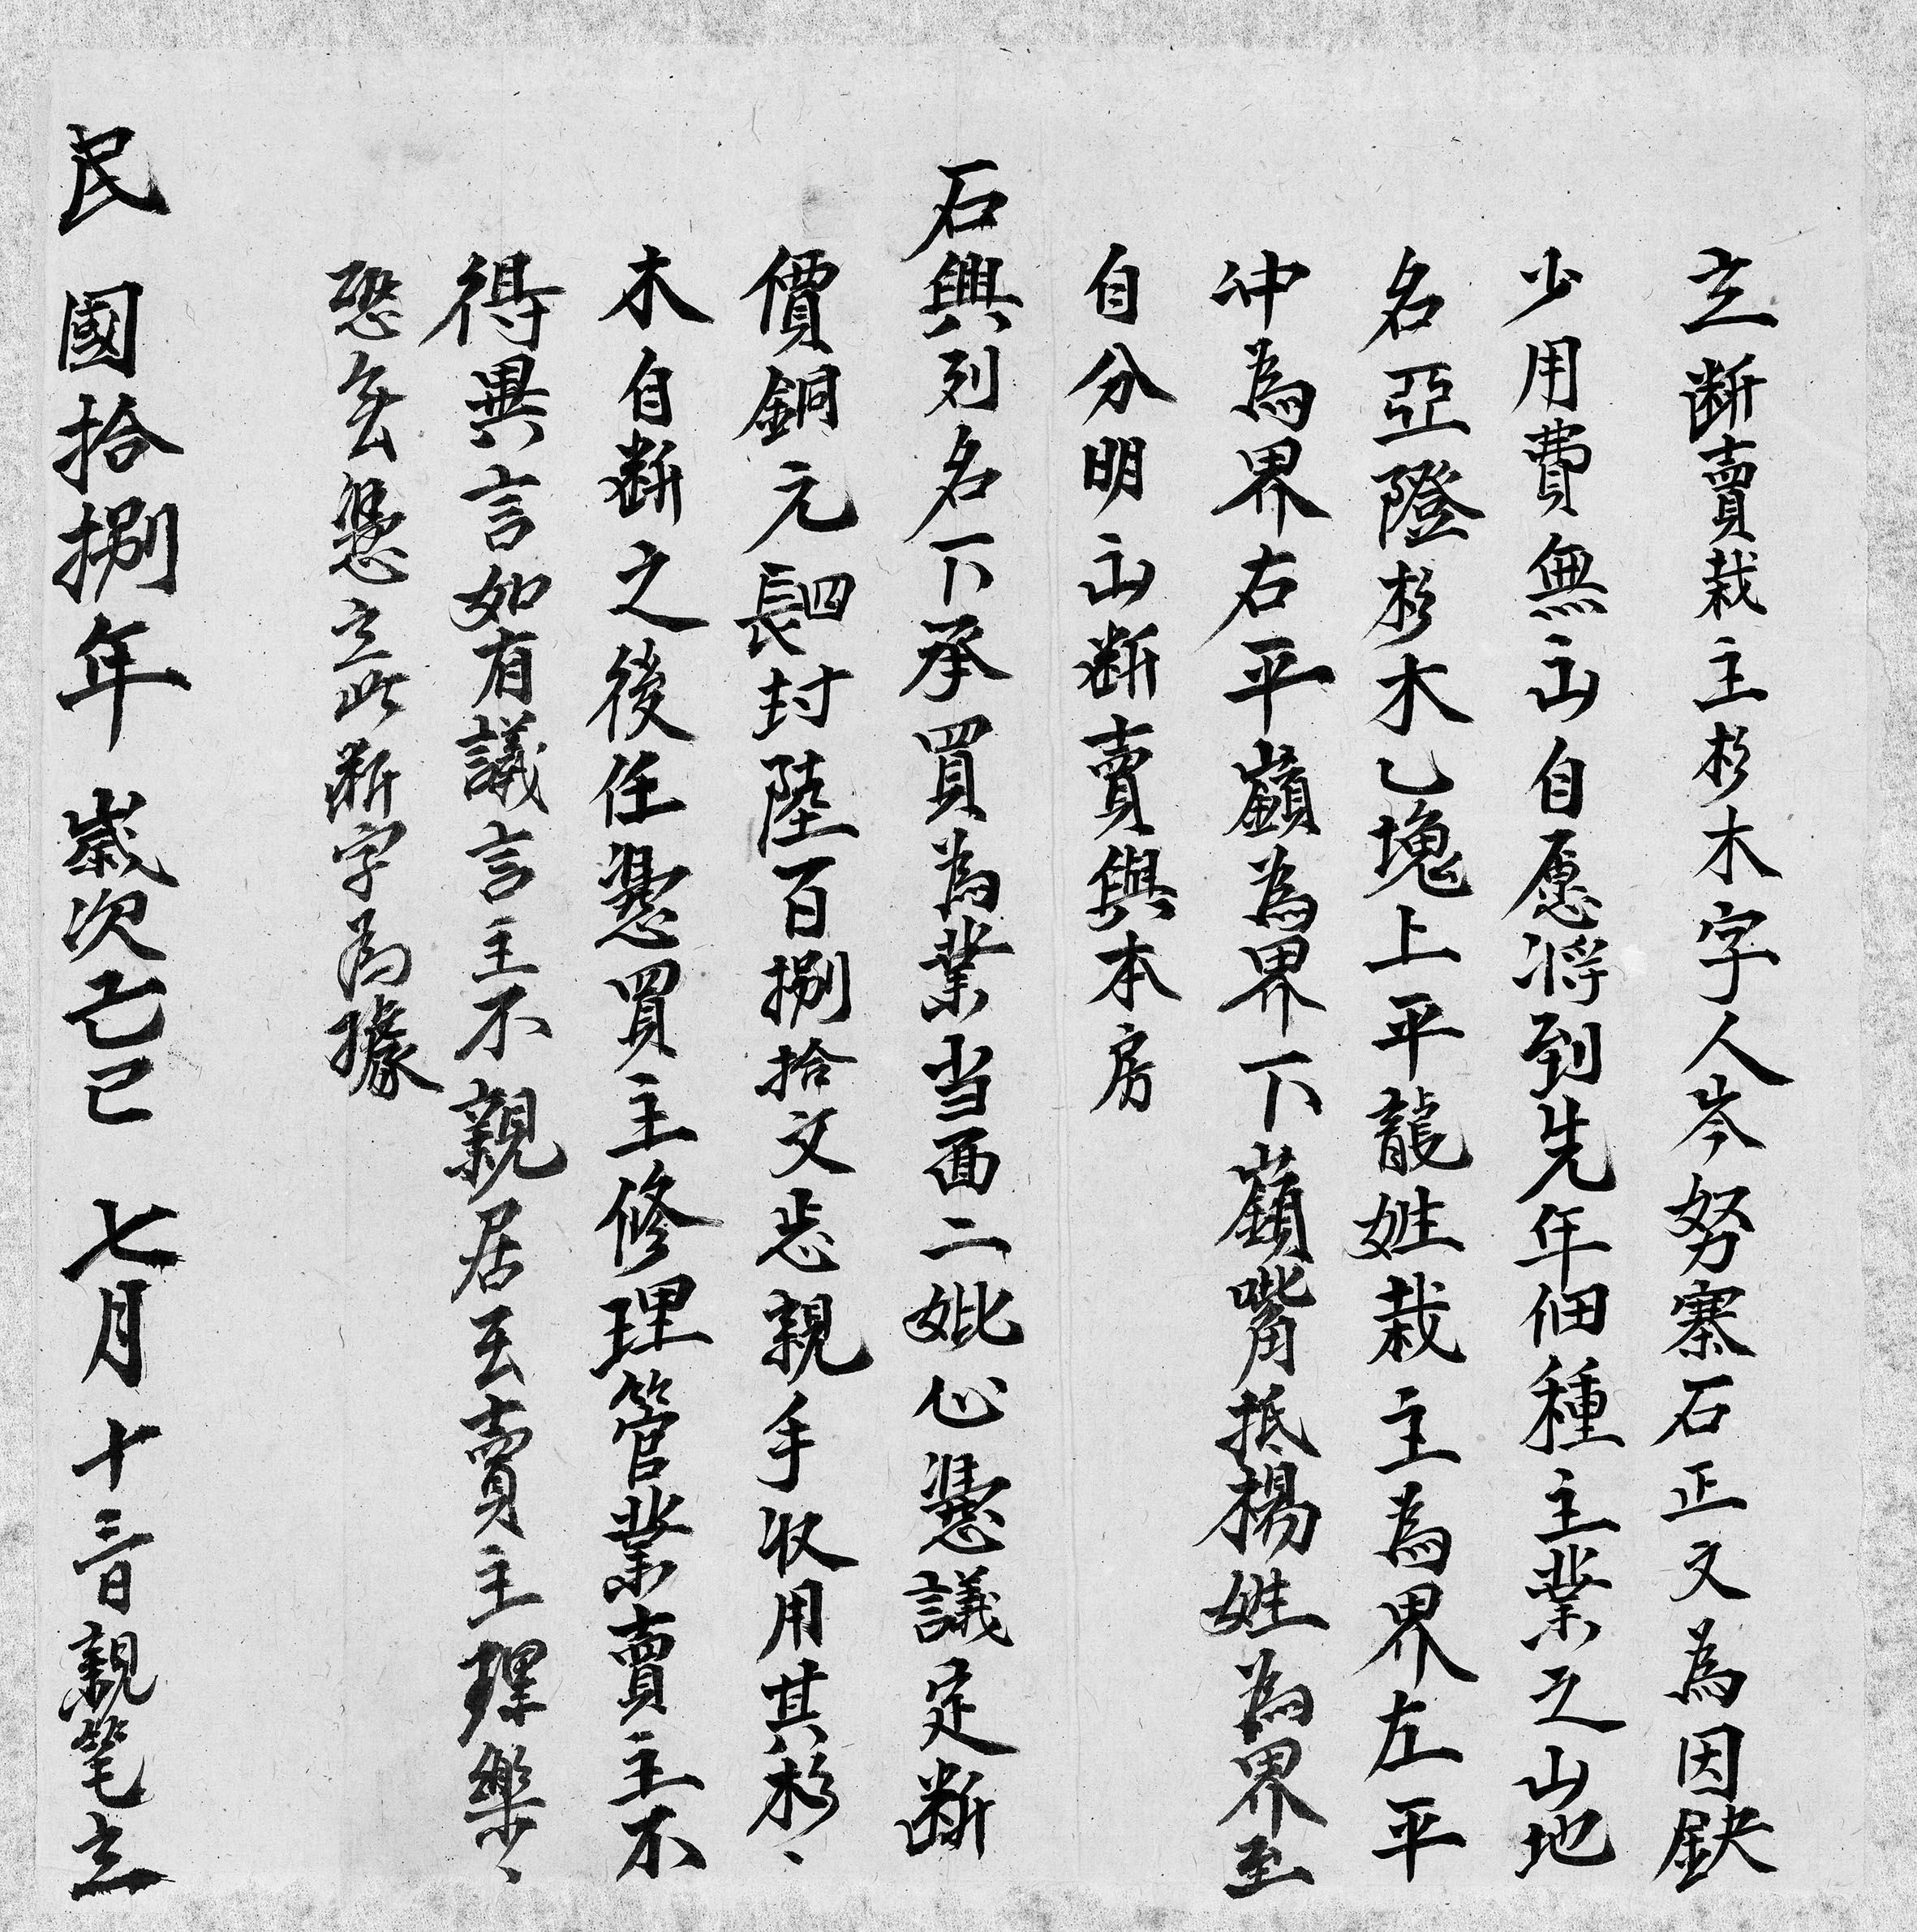 立断賣栽主杉木字人岑努寨石正文為因缺
少用費無山自愿将到先年佃種主業之山地
名亞隥杉木乙塊上平龍姓栽主為界左平
冲為界右平巔為界下巔嘴抵楊姓為界至
自分明山断賣與本房
石興列名下承買為業当面二妣心憑議定断
價銅元四封陸百捌拾文恶親手收用其杉〻
木自断之後任憑買主修理管業賣主不
得異言如有議言主不親居云賣主理樂〻
恐無憑立此断字為據
民國拾捌年歲次己巳七月十三日親筆立